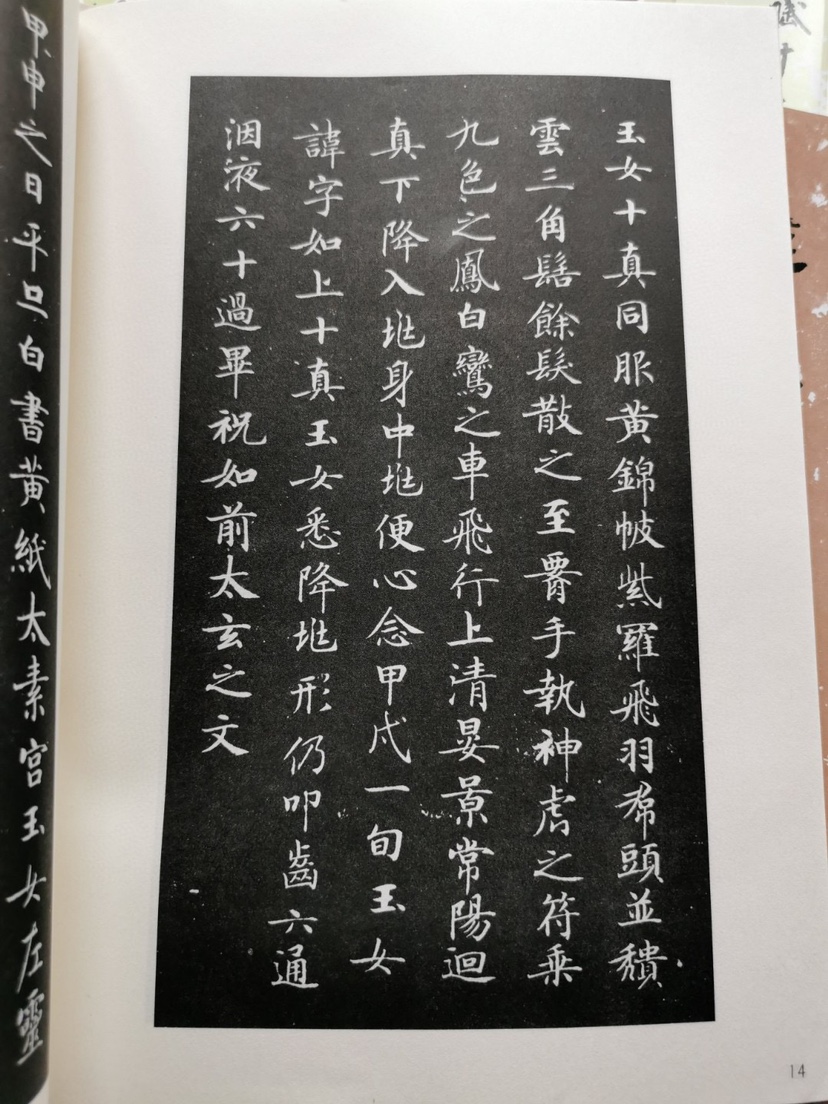 玉女十真同服黄錦帔紫羅飛羽帬頭並穨
雲三角髻餘髮散之至䯒手執神虎之符乗
九色之鳳白鸞之車飛行上清晏景常陽迴
真下降入㘴身中㘴便心念甲戌一旬玉女
諱字如上十真玉女悉降㘴形仍叩齒六通
咽液六十過畢祝如前太玄之文
甲申之日平旦白書黄紙太素宮玉女左靈
14